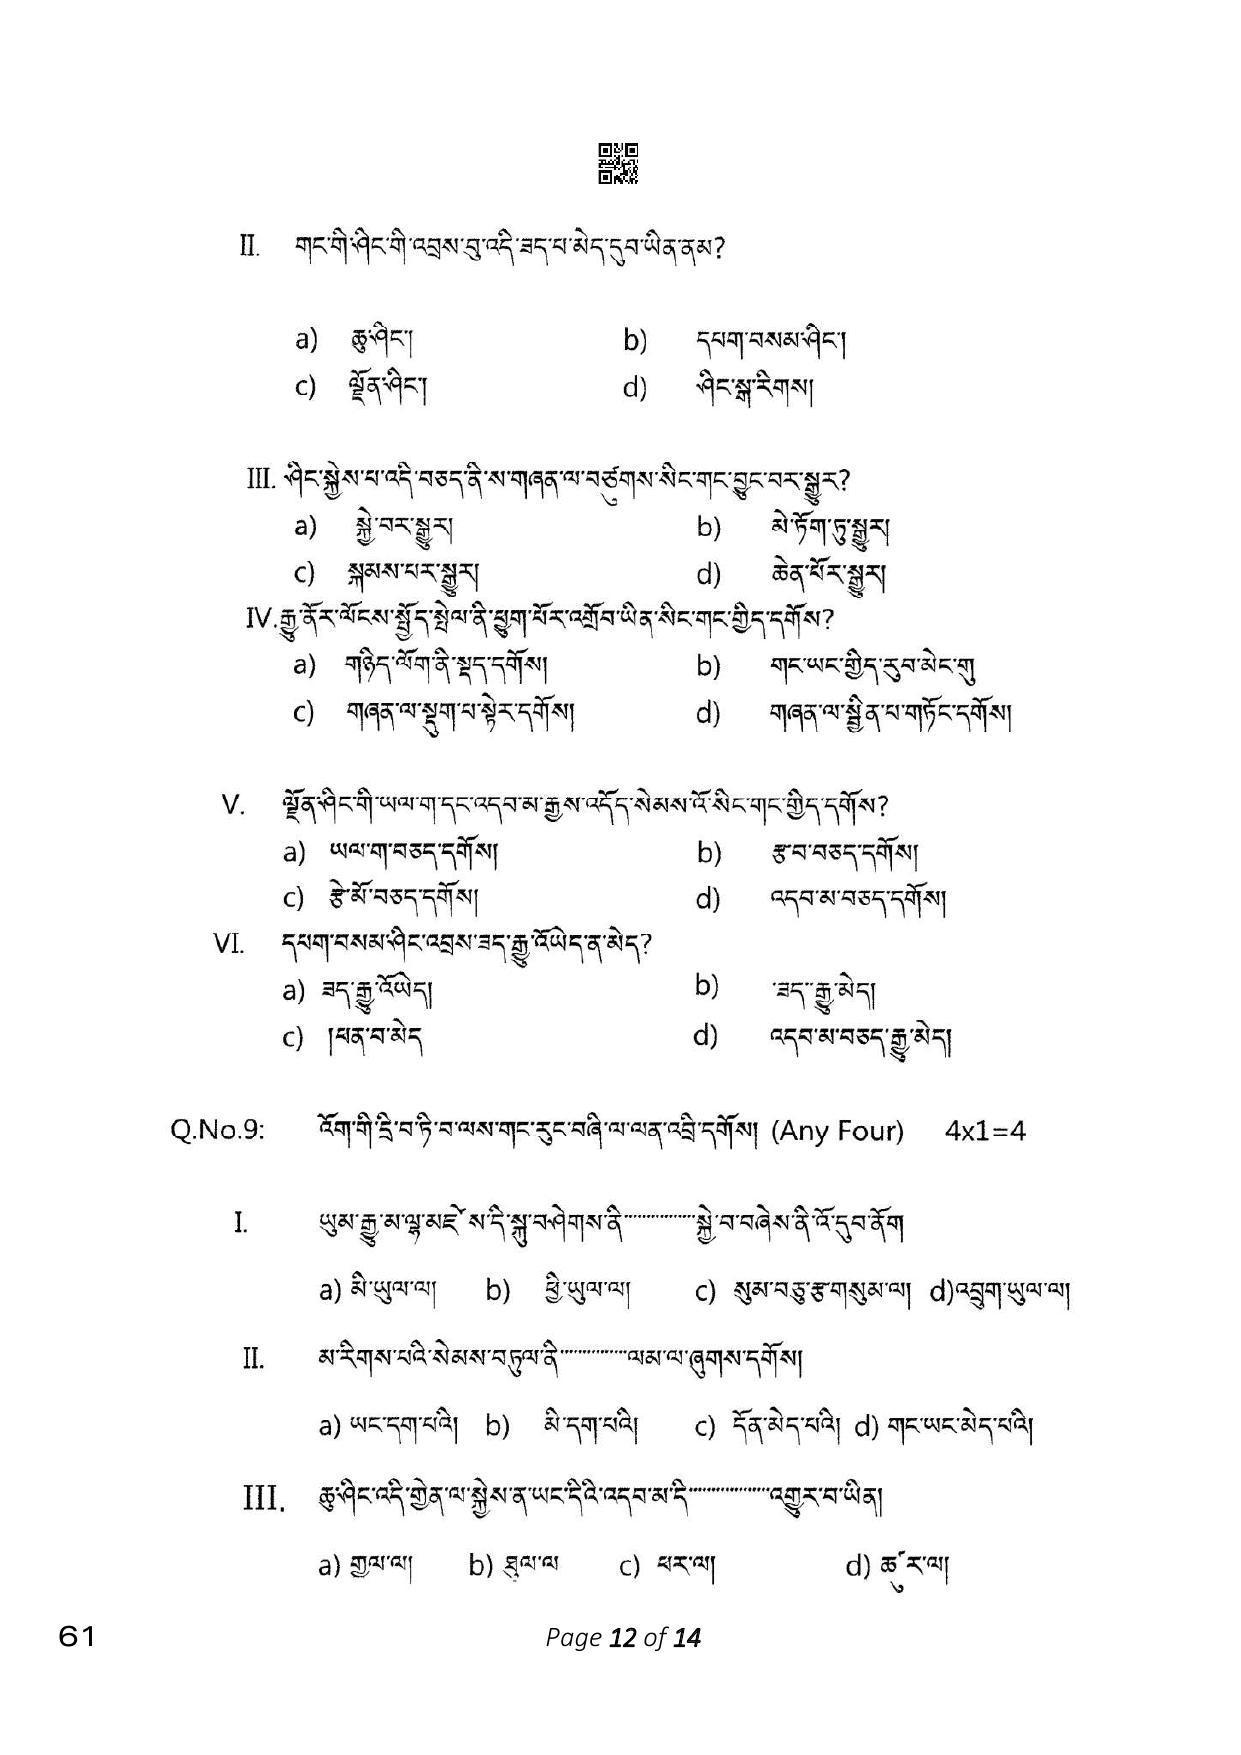 II. གང་གི་ཤིང་གི་འབྲས་བུ་འདི་ཟད་པ་མེད་དུབ་ཡིན་ནམ?
a) ཆུ་ཤིང་། b) དཔག་བསམ་ཤིང་།
c) ལྗོན་ཤིང་། d) ཤིང་སྣ་རིགས།
III. ཤིང་སྐྱེས་པ་འདི་བཅད་ནི་ས་གཞན་ལ་བཙུགས་སིང་གང་བྱུང་བར་སྒྱུར?
a) སྐྱེ་བར་སྒྱུར། b) མེ་ཏོག་ཏུ་སྒྱུར།
c) སྐམས་པར་སྒྱུར། d) ཆེན་པོར་སྒྱུར།
IV.རྒྱུ་ནོར་ལོངས་སྤྱོད་སྤེལ་ནི་ཕྱུག་པོར་འགྲོབ་ཡིན་སིང་གང་གྱིད་དགོས?
a) གཉིད་ལོག་ནི་སྡད་དགོས། b) གང་ཡང་གྱིད་རུབ་མེང་གུ
c) གཞན་ལ་སྡུག་པ་སྟེར་དགོས། d) གཞན་ལ་སྦྱིན་པ་གཏོང་དགོས།
V. ལྗོན་ཤིང་གི་ཡལ་ག་དང་འདབ་མ་རྒྱས་འདོད་སེམས་འོ་སིང་གང་གྱིད་དགོས?
a) ཡལ་ག་བཅད་དགོས། b) རྩ་བ་བཅད་དགོས།
c) རྩེ་མོ་བཅད་དགོས། d) འདབ་མ་བཅད་དགོས།
VI. དཔག་བསམ་ཤིང་འབྲས་ཟད་རྒྱུ་འོཡེད་ན་མེད?
a) ཟད་རྒྱུ་འོཡེད། b) ་ཟད་་རྒྱུ་མེད།
c) །ཕན་བ་མེད d) འདབ་མ་བཅད་རྒྱུ་མེད།
Q.No.9: འོག་གི་དྲི་བ་ཏི་བ་ལས་གང་རུང་བཞི་ལ་ལན་འབྲི་དགོས། (Any Four) 4x1=4
I. ཡུམ་རྒྱུ་མ་ལྷ་མཛེས་དི་སྐུ་བཤེགས་ནི................སྐྱེ་བ་བཞེས་ནི་འོ་དུབ་ནོག
a) མི་ཡུལ་ལ། b) ཕྱི་ཡུལ་ལ། c) སུམ་བཅུ་རྩ་གསུམ་ལ། d)འབྲུག་ཡུལ་ལ།
II. མ་རིགས་པའི་སེམས་བཏུལ་ནི................ལམ་ལ་ཞུགས་དགོས།
a) ཡང་དག་པའི། b) མི་དག་པའི། c) དོན་མེད་པའི། d) གང་ཡང་མེད་པའི།
III. ཆུ་ཤིང་འདི་གྱེན་ལ་སྐྱེས་ན་ཡང་དིའི་འདབ་མ་དི..................འགྱུར་བ་ཡིན།
a) གྱལ་ལ། b) ཐུལ་ལ c) ཕར་ལ། d) ཚུར་ལ།
61 Page 12 of 14